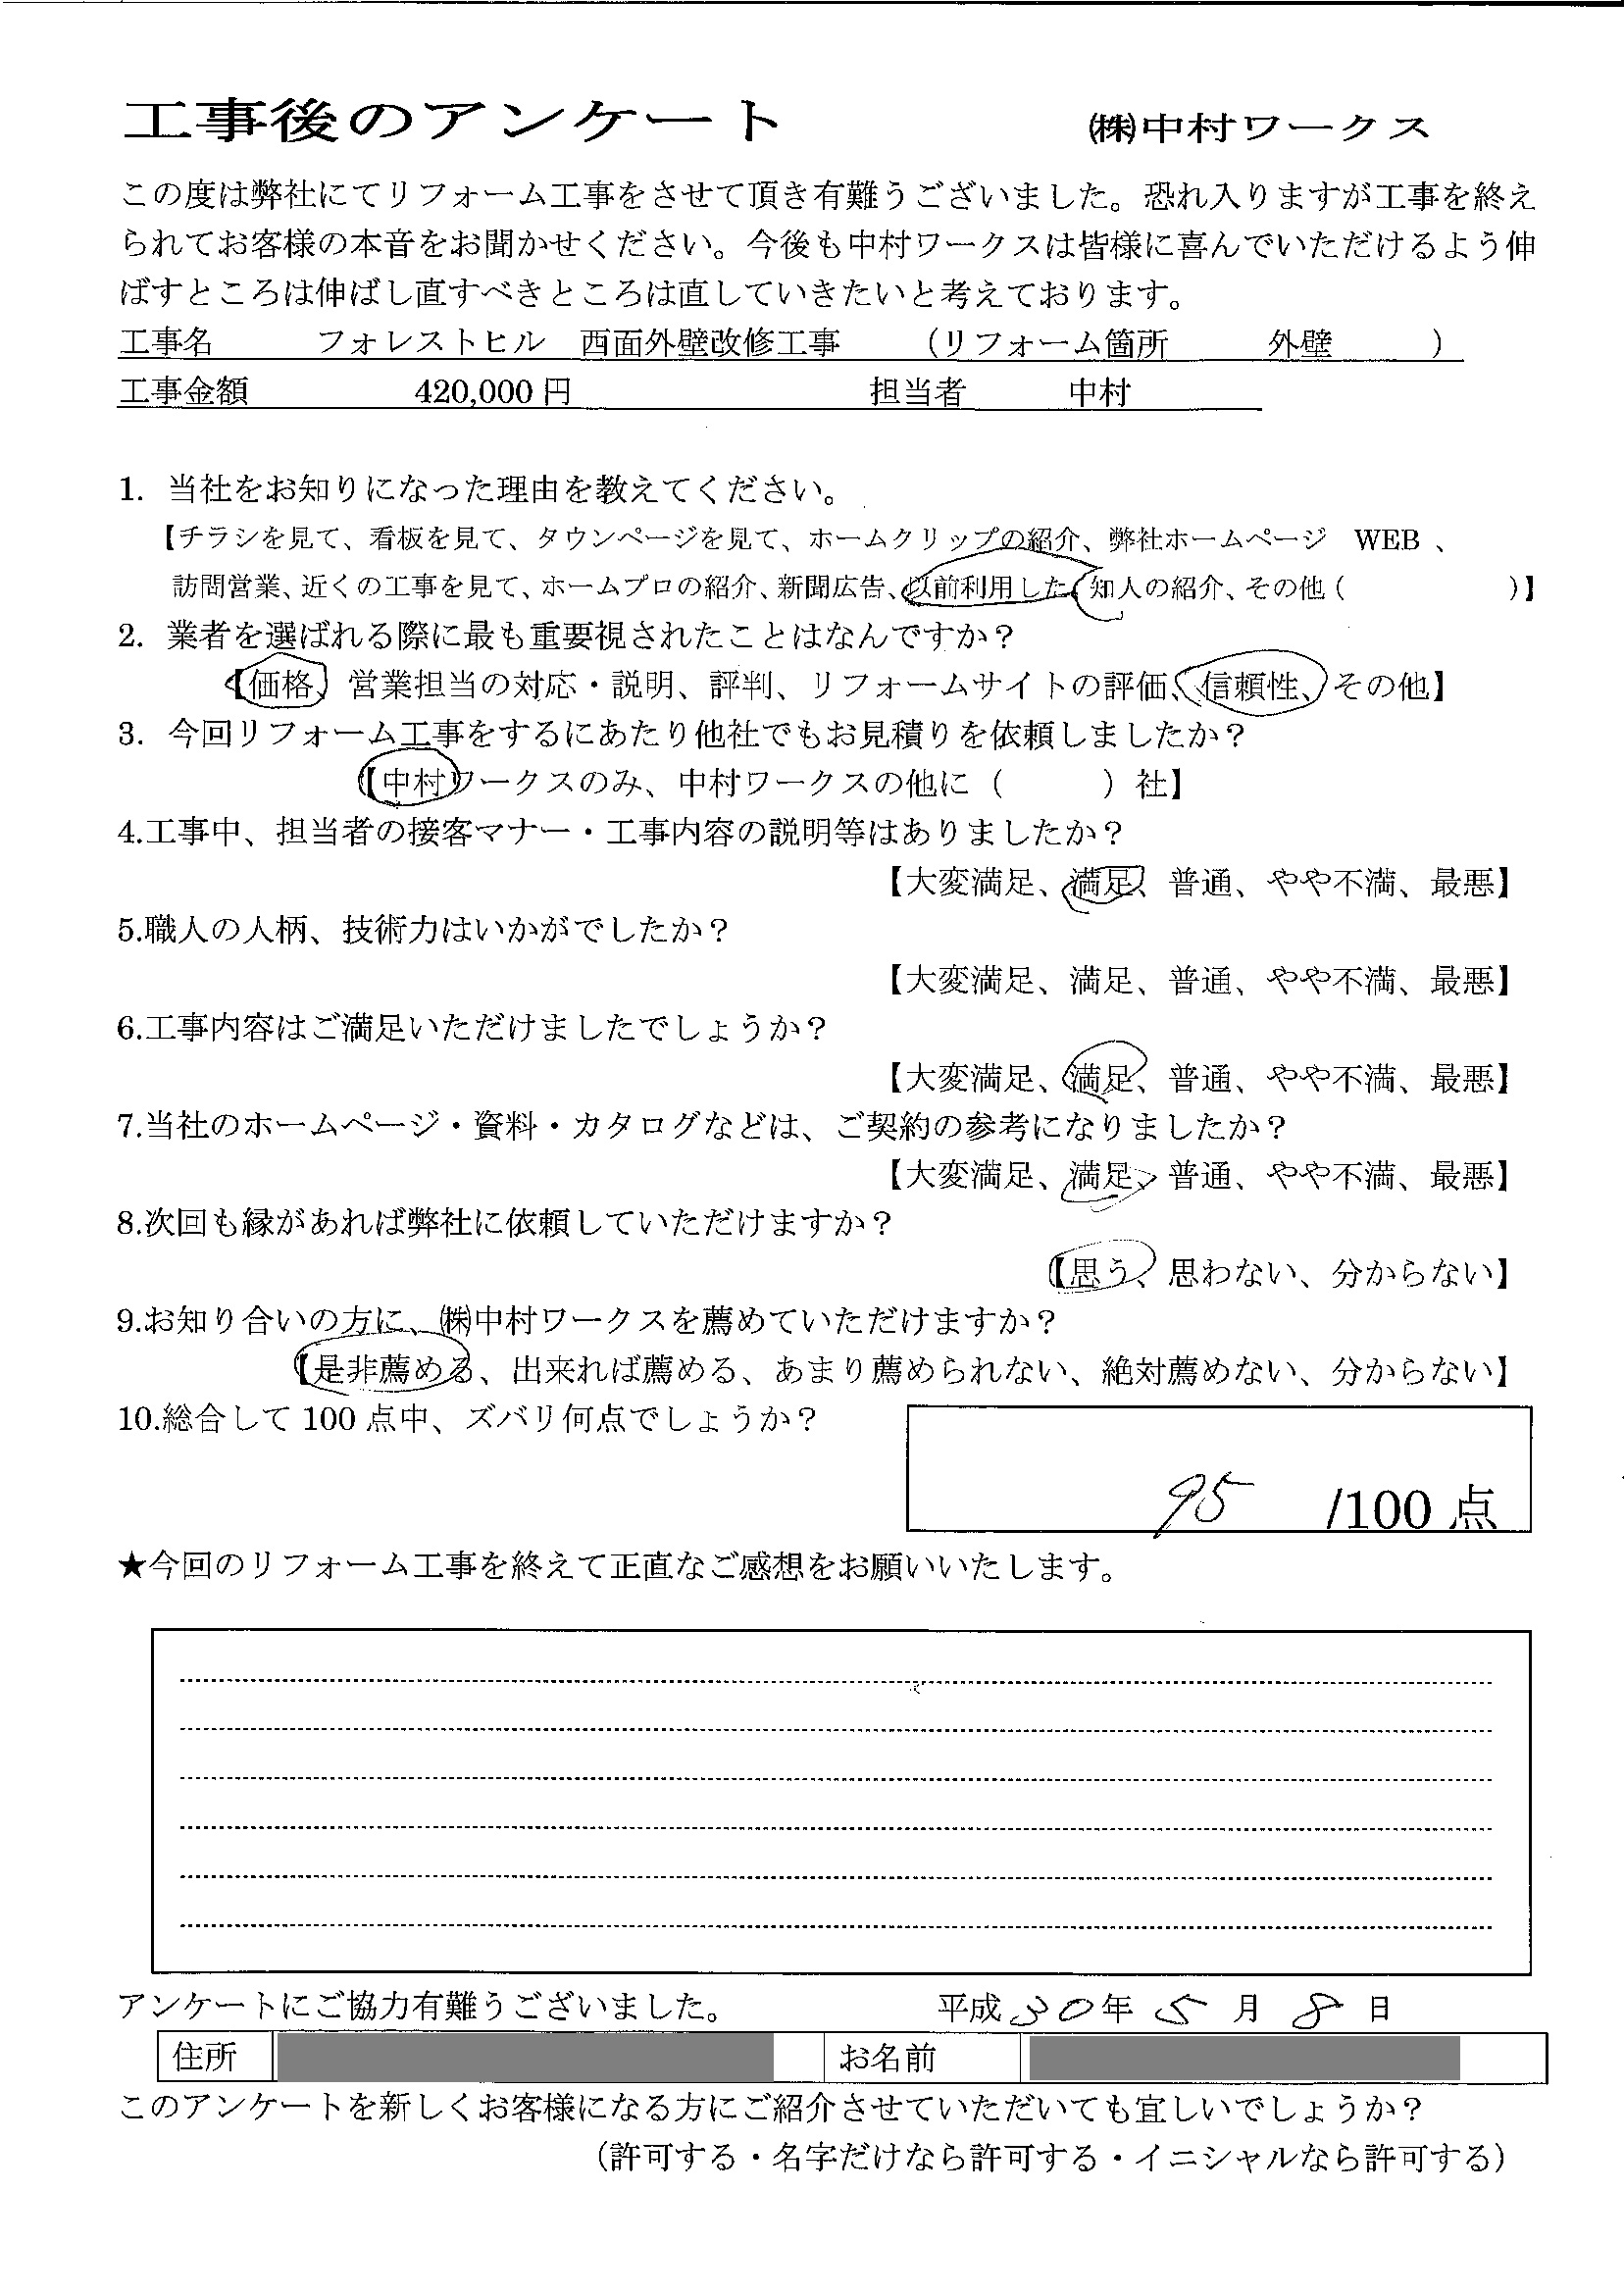 工事後のアンケート　㈱中村ワークス
この度は弊社にてリフォーム工事をさせて頂き有難うございました。恐れ入りますが工事を終え
られてお客様の本音をお聞かせください。今後も中村ワークスは皆様に喜んでいただけるよう伸
ばすところは伸ばし直すべきところは直していきたいと考えております。
工事名　フォレストヒル　西面外壁改修工事　（リフォーム箇所　外壁　）
工事金額　420,000 円　担当者　中村
1. 当社をお知りになった理由を教えてください。
【チラシを見て、看板を見て、タウンページを見て、ホームクリップの紹介、弊社ホームページ　WEB 、
訪問営業、近くの工事を見て、ホームプロの紹介、新聞広告、以前利用した、知人の紹介、その他（　　　）】
2. 業者を選ばれる際に最も重要視されたことはなんですか？
【価格、営業担当の対応・説明、評判、リフォームサイトの評価、信頼性、その他】
3. 今回リフォーム工事をするにあたり他社でもお見積りを依頼しましたか？
【中村ワークスのみ、中村ワークスの他に（　　　）社】
4.工事中、担当者の接客マナー・工事内容の説明等はありましたか？
【大変満足、満足、普通、やや不満、最悪】
5.職人の人柄、技術力はいかがでしたか？
【大変満足、満足、普通、やや不満、最悪】
6.工事内容はご満足いただけましたでしょうか？
【大変満足、満足、普通、やや不満、最悪】
7.当社のホームページ・資料・カタログなどは、ご契約の参考になりましたか？
【大変満足、満足、普通、やや不満、最悪】
8.次回も縁があれば弊社に依頼していただけますか？
【思う、思わない、分からない】
9.お知り合いの方に、㈱中村ワークスを薦めていただけますか？
【是非薦める、出来れば薦める、あまり薦められない、絶対薦めない、分からない】
10.総合して 100 点中、ズバリ何点でしょうか？
95 /100 点
★今回のリフォーム工事を終えて正直なご感想をお願いいたします。
アンケートにご協力有難うございました。　平成 30 年 5 月 8 日
住所　お名前
このアンケートを新しくお客様になる方にご紹介させていただいても宜しいでしょうか？
（許可する・名字だけなら許可する・イニシャルなら許可する）